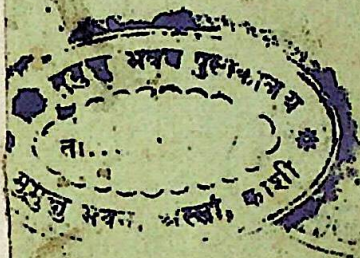 मुमुक्षु भवन पुस्तकालय
ता....
मुमुक्षु भवन, अस्सी, काशी